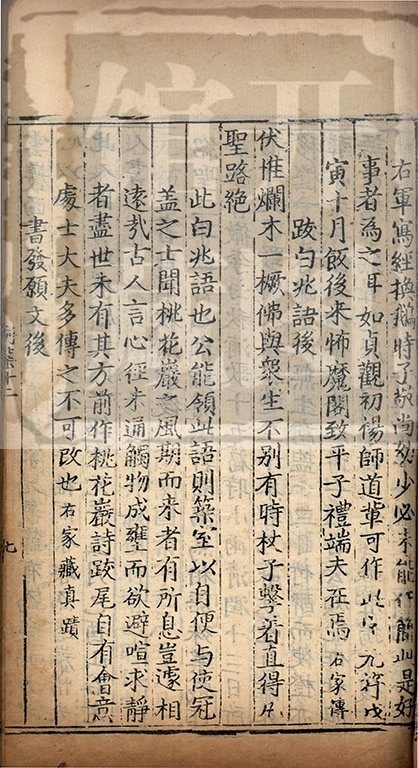 右軍寫經換鵝時子敬尚幼少必未能作簡此是好
事者為之耳如貞觀初楊師道輩可作此字元符戊
寅十月飯後来怖魔閣致平子禮端夫在焉 右家傳
跋白兆語後
伏惟爛木一橛佛與衆生不别有時杖子擊着直得凡
聖路絶
此白兆語也公能領此語則築室以自便与使冠
盖之士聞桃花巖之風期而来者有所息豈遽相
遠㢤古人言心徑未通觸物成壅而欲避喧求静
者盡世未有其方前作桃花巖詩跋尾自有會意
處士大夫多傳之不可改也 右家藏真蹟
書發願文後